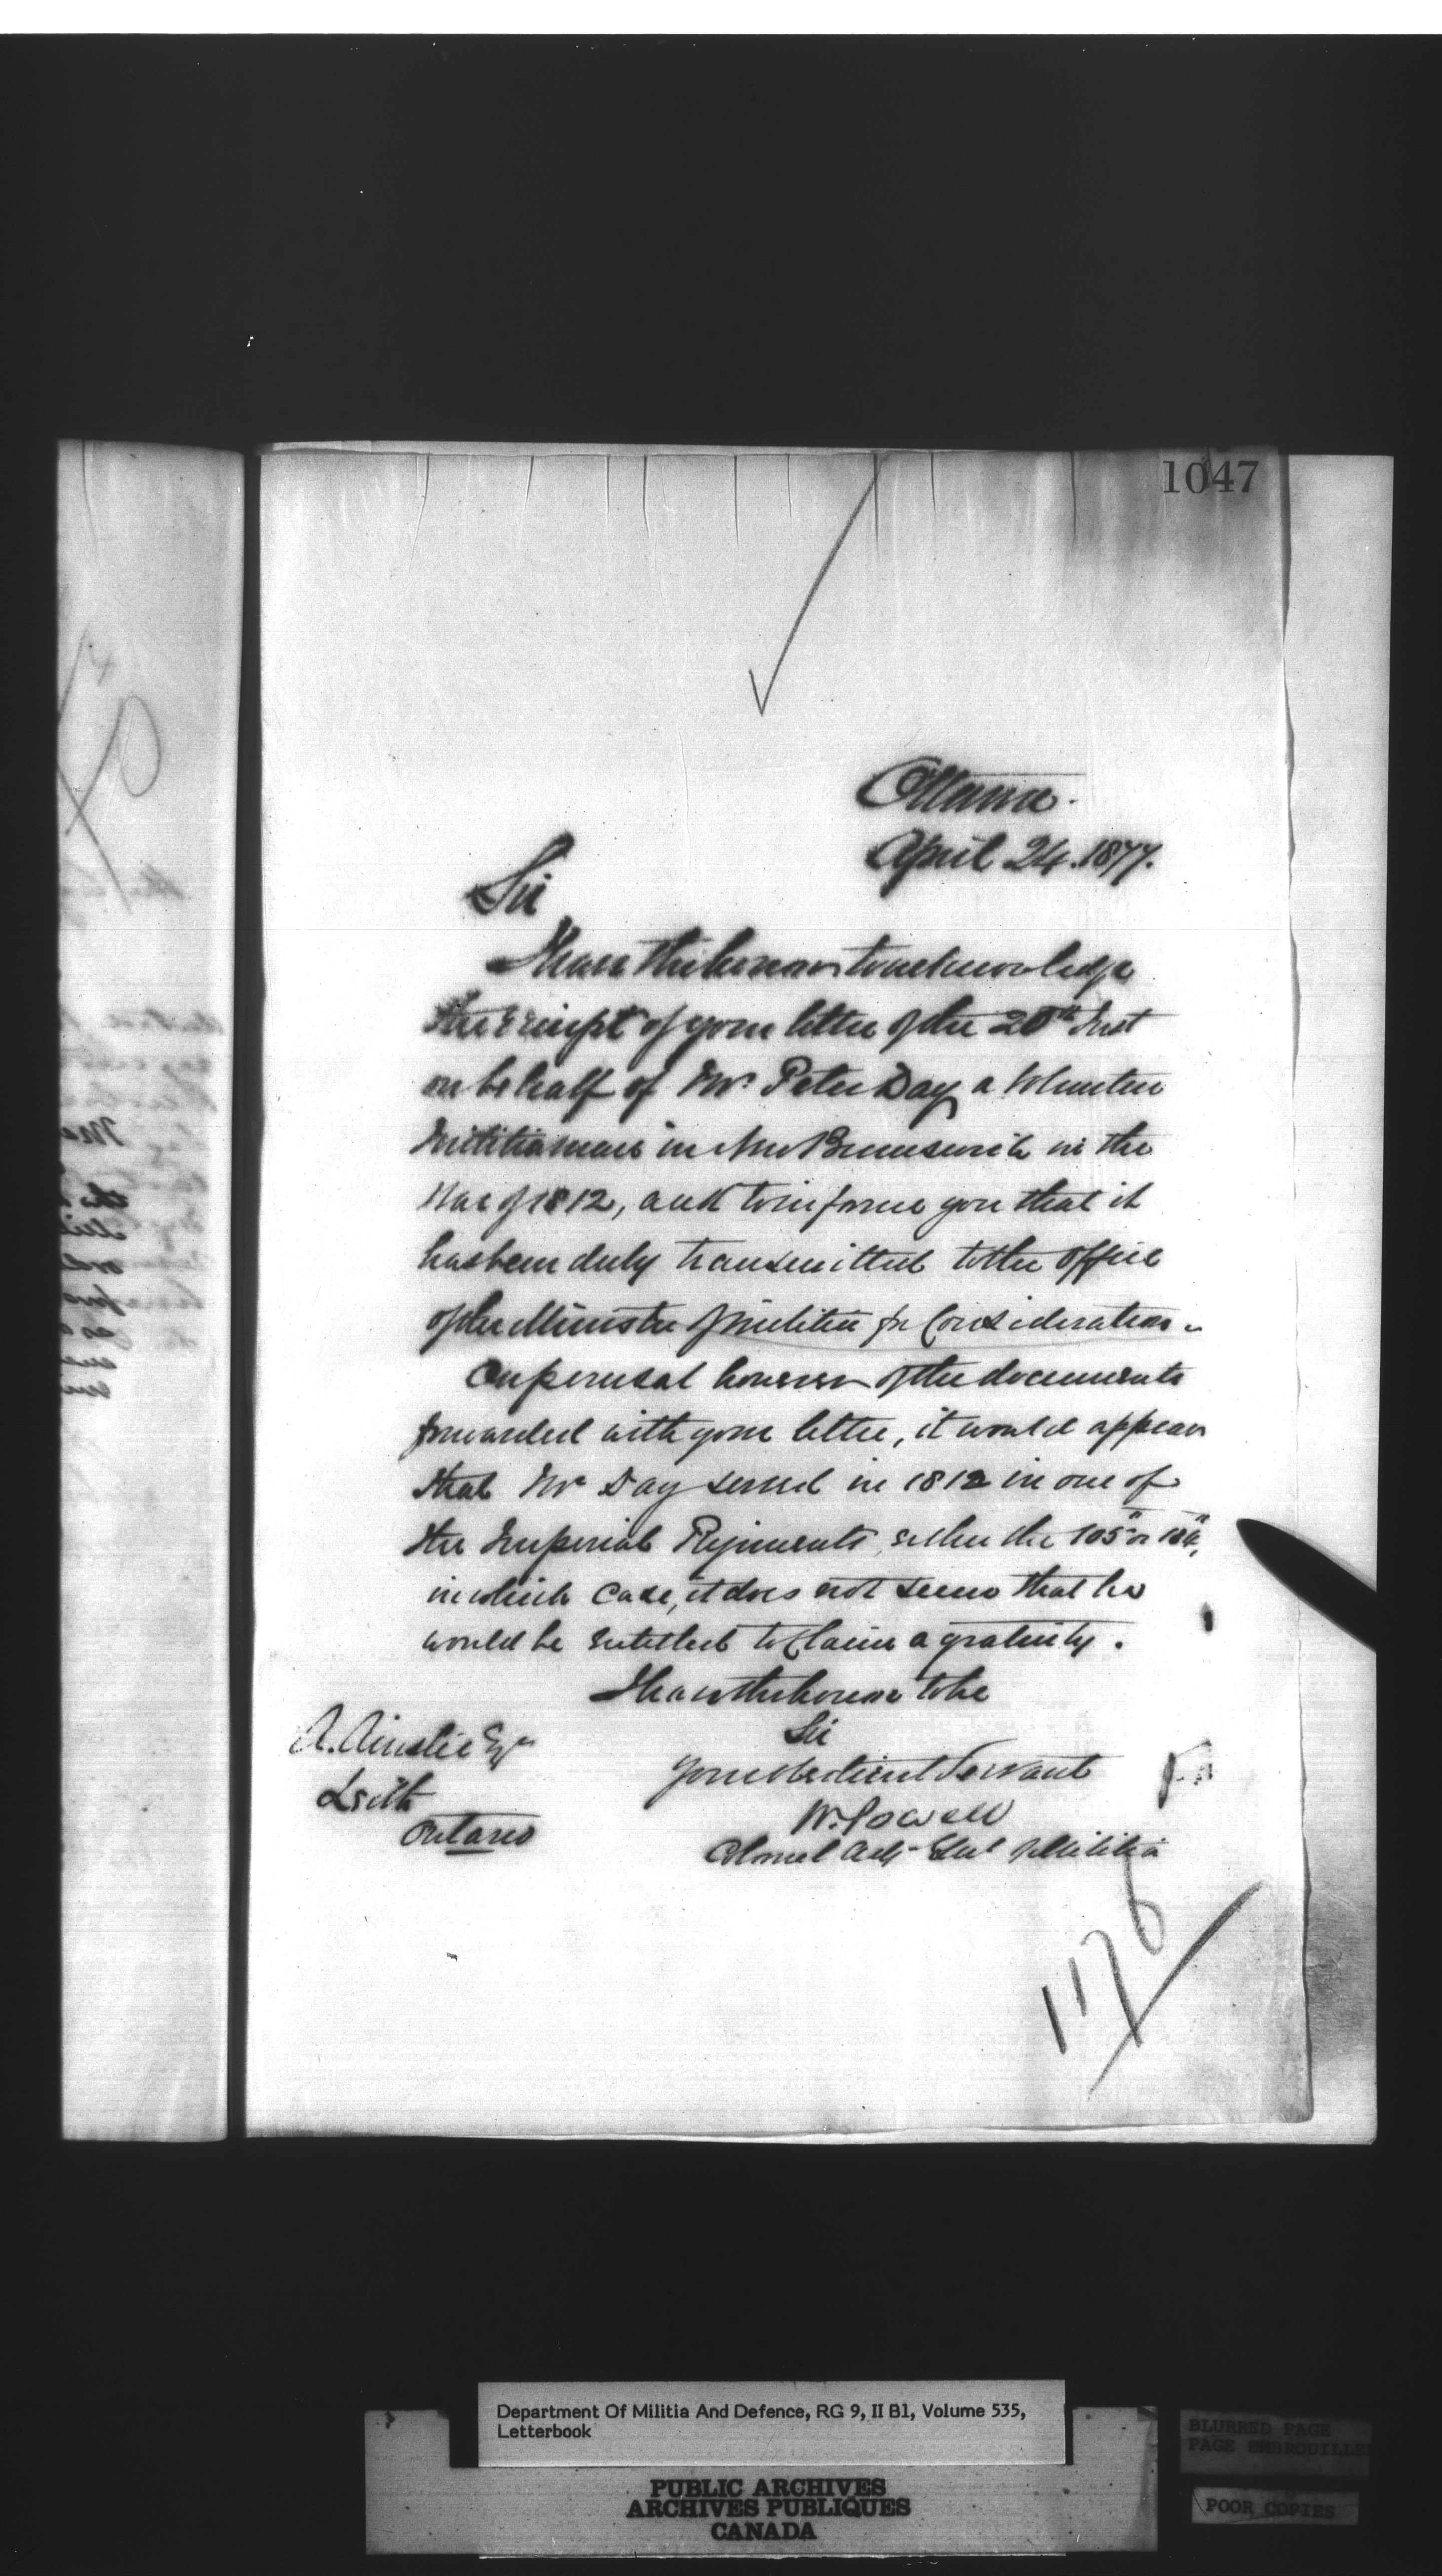 1047
Ottawa.
April 24. 1877.
Sir
I have the honor to acknowledge
the receipt of your letter of the 20th Inst
on behalf of Mr. Peter Day a Volunteer
Militiaman in New Brunswick in the
War of 1812, and to inform you that it
has been duly transmitted to the office
of the Minister of Militia for Consideration.
On perusal however of the documents
forwarded with your letter, it would appear
that Mr Day served in 1812 in one of
the Imperial Regiments, either the 105" or 104",
in which case, it does not seem that he
would be entitled to Claim a gratuity.
I have the honor to be
Sir
Your obedient Servant
W. Powell
Colonel Adj- Genl of Militia
A. Ainslie Esqr
Leith
Ontario
1176
Department Of Militia And Defence, RG 9, II B1, Volume 535,
Letterbook
PUBLIC ARCHIVES
ARCHIVES PUBLIQUES
CANADA
BLURRED PAGE
PAGE EMBROUILLE
POOR COPIES